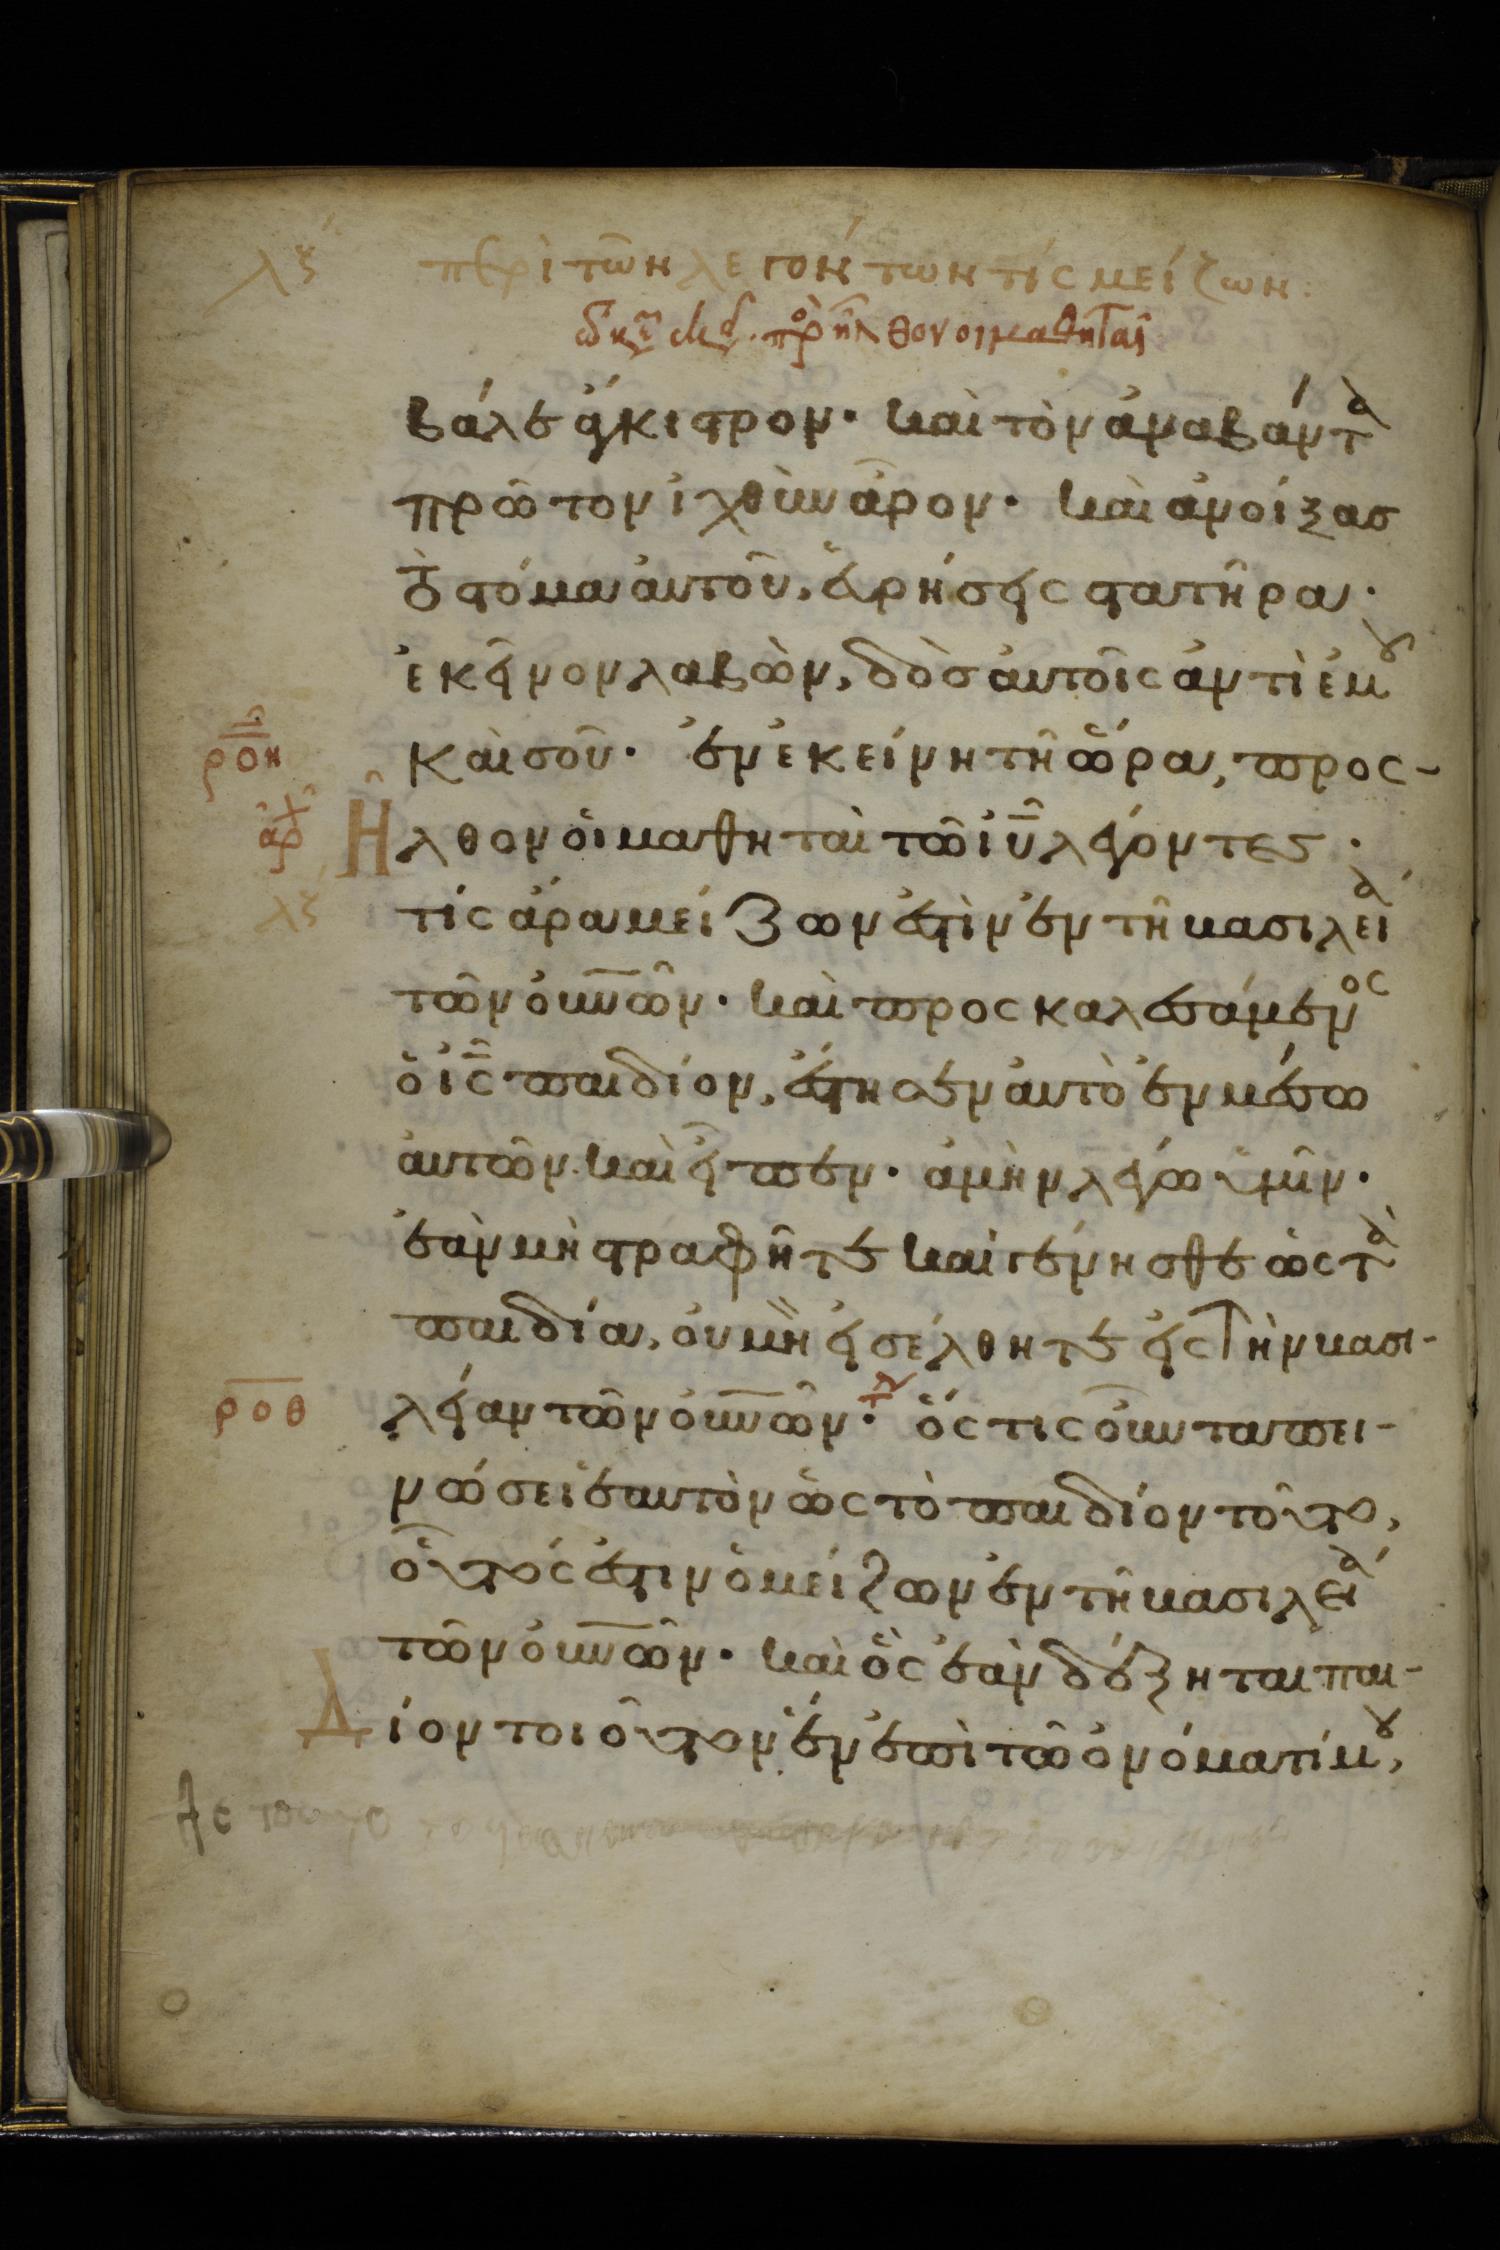 λξ περὶ τῶν λεγόντων τίς μείζων:
προῆλθον οι μαθηταὶ
βάλε ἄγκιστρον· καὶ τὸν ἀναβάντα
πρῶτον ἰχθὺν ἆρον· καὶ ἀνοίξας
τὸ στόμα αὐτοῦ, εὑρήσεις στατῆρα·
ἐκεῖνον λαβὼν, δὸς αὐτοῖς ἀντὶ ἐμοῦ
ροη καὶ σοῦ· ἐν ἐκείνη τῆ ὥρα, προς-
αρχ Η͂λθον οἱ μαθηταὶ τῶ ἰῦ λέγοντες·
λξ τίς ἄρα μείζων ἐστὶν ἐν τῆ βασιλεία
τῶν οὐνῶν· καὶ προς καλεσάμενος
ὁ ἰς παιδίον, ἔστησεν αὐτὸ ἐν μέσω
αὐτῶν· καὶ εἶπεν· ἀμὴν λέγω ὑμῖν·
ἐὰν μὴ στραφῆτε καὶ γένησθε ὡς τὰ
παιδία, οὐ μὴ εἰσέλθητε εἰς τὴν βασι-
ροθ λείαν τῶν οὐνῶν· ὅς τις οὖν ταπει-
νώσει ἑαυτὸν ὡς τὸ παιδίον τοῦτο,
οὗτός ἐστιν ὁ μείζων ἐν τῆ βασιλεία
τῶν οὐνῶν· καὶ ὃς ἐὰν δέξηται παι-
Δίον τοιοῦτον ἓν ἐπὶ τῶ ὀνόματί μου,